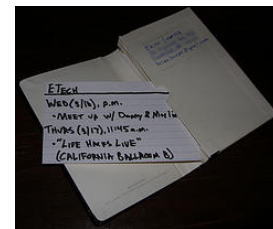 ETECH
WED (3/16), P.M.
• MEET UP W/ DANNY & MERLIN
THURS (3/17), 11:45 a.m.
• "LIFE HACKS LIVE"
(CALIFORNIA BALLROOM B)